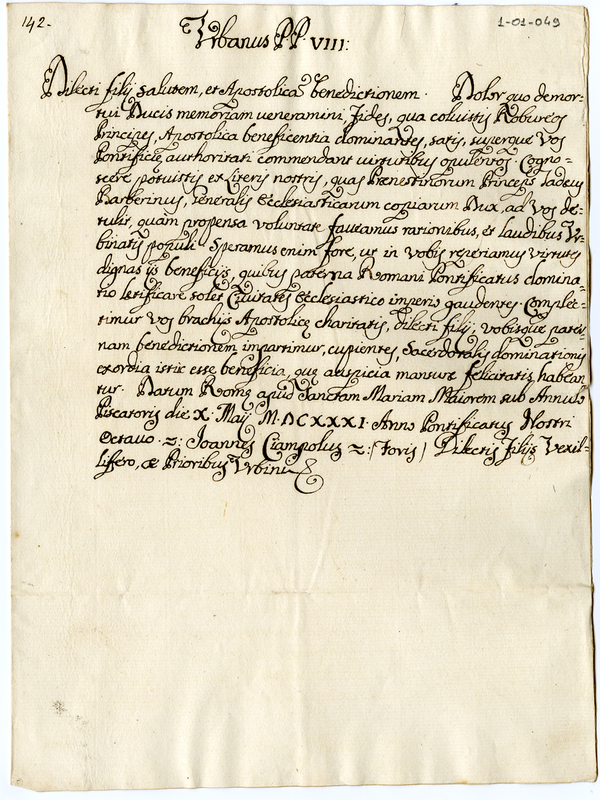 142.
1-01-049
Urbanus PP. VIII:
Dilecti filij salutem, et Apostolicã benedictionem. Dolor quo demor-
tui Ducis memoriam veneramini, fides, qua coluistis Robureos
Principes, Apostolica beneficentia dominantes, satis, superque Vos
Pontificie authoritati commendant virtutibus opulentos. Cogno-
scere potuistis ex literis nostris, quas Prenestinorum Princeps Tadeus
Barberinus, Generalis Ecclesiasticarum copiarum Dux, ad Vos de-
tulit, quam propensa voluntate faveamus rationibus, et laudibus Ur-
binatis populi. Speramus enim fore, ut in vobis reperiamus virtutes
dignas ijs beneficijs, quibus paterna Romani Pontificatus domina-
tio letificare solet Civitates Ecclesiastico imperio gaudentes. Complec-
timur Vos brachijs Apostolicę charitatis, dilecti filij, vobisque pater-
nam benedictionem impartimur, cupientes, Sacerdotalis dominationis
exordia istic esse beneficia, quę auspicia mansurę felicitatis habean
tur. Datum Romę apud Sanctam Mariam Maiorem sub Annulo
Piscatoris die X. Maij M.DCXXXI. Anno Pontificatus Nostri
Octavo =: Joannes Ciampolus =: (foris) Dilectis filijs Vexil-
lifero, æ Prioribus Urbini